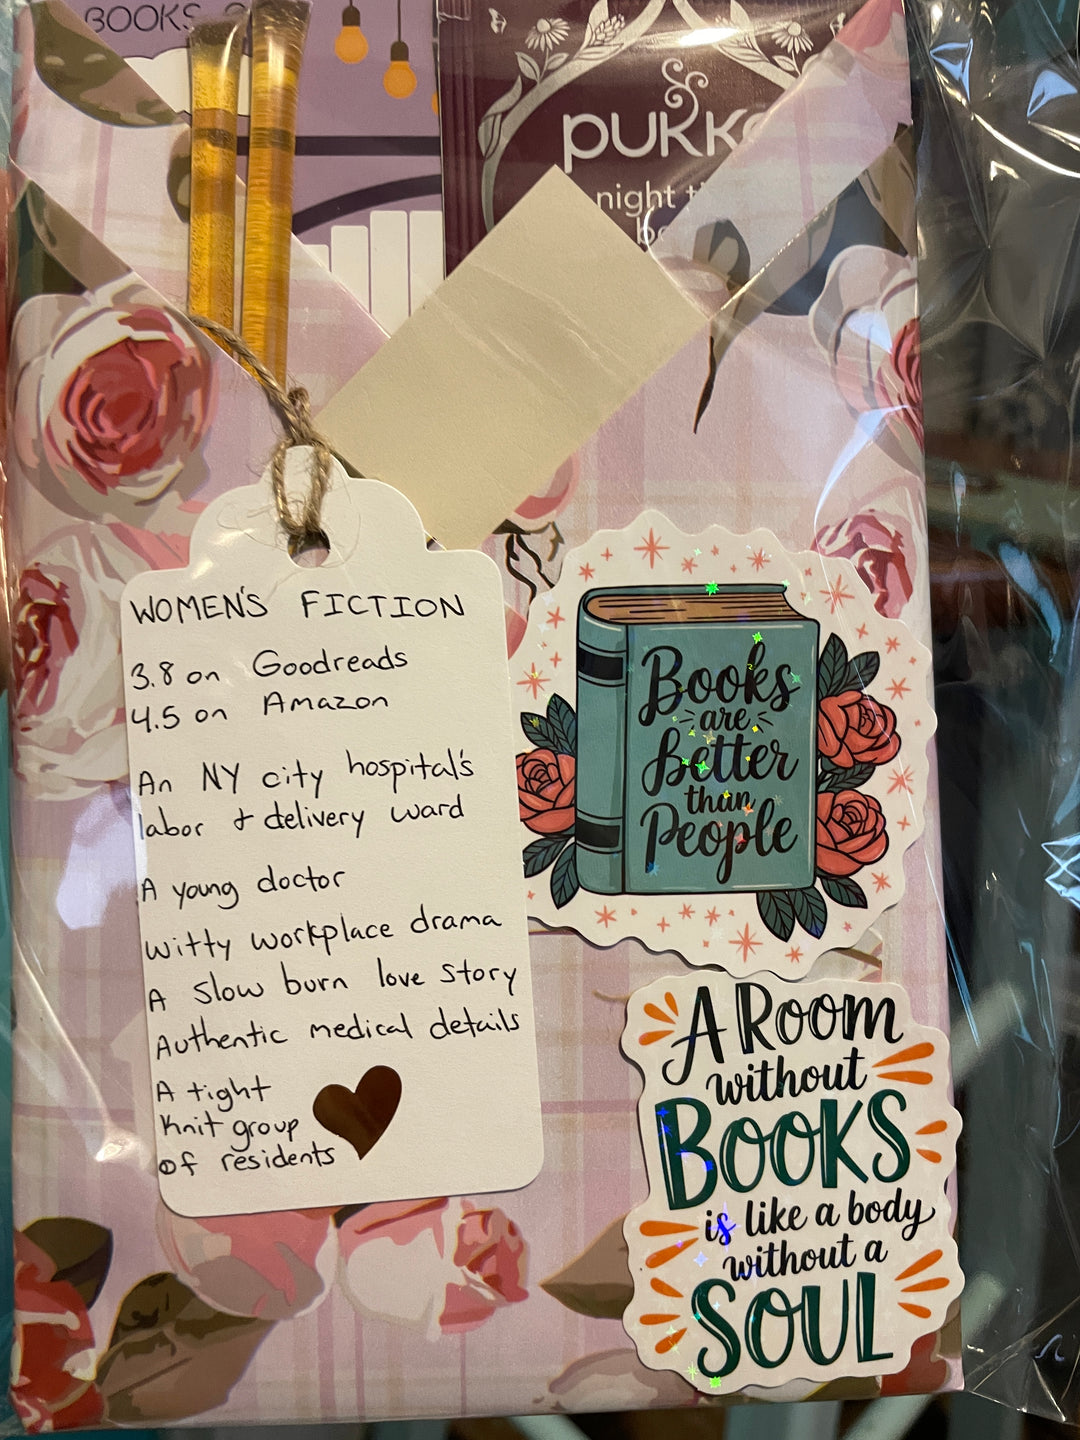 BOOKS
pukka
night
WOMEN'S FICTION
3.8 on Goodreads
4.5 on Amazon
An NY city hospital's
labor & delivery ward
A young doctor
witty workplace drama
A slow burn love story
Authentic medical details
A tight
knit group
of residents
Books
are
Better
than
People
A ROOM
without
BOOKS
is like a body
without a
SOUL